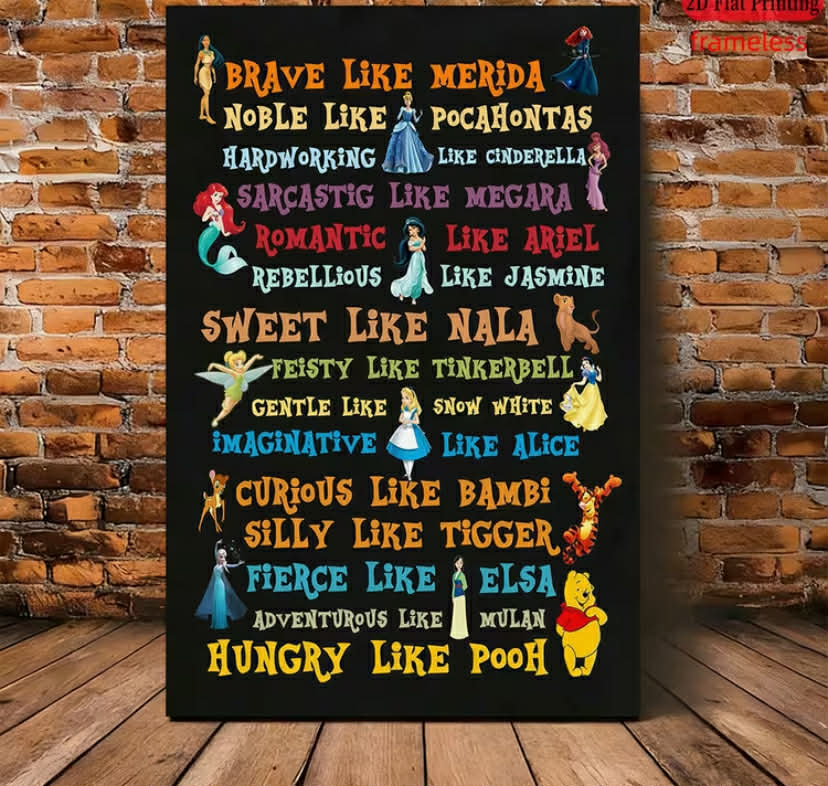 2D Flat Printing
frameless
BRAVE LiKE MERIDA
NOBLE LiKE POCAHONTAS
HARDWORKiNG LiKE CiNDERELLA
SARCASTiG LiKE MEGARA
ROMANTiC LiKE ARiEL
REBELLiOUS LiKE JASMiNE
SWEET LiKE NALA
FEiSTY LiKE TiNKERBELL
GENTLE LiKE SNOW WHiTE
iMAGiNATiVE LiKE ALiCE
CURiOUS LiKE BAMBi
SiLLY LiKE TiGGER
FiERCE LiKE ELSA
ADVENTUROUS LiKE MULAN
HUNGRY LiKE POOH